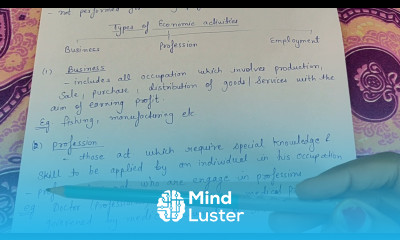 - not performed
Types of Economic activities
Business Profession Employment
(1) Business
- includes all occupation which involves production,
Sale, purchase, distribution of goods/services with the
aim of earning profit
Eg. fishing, manufacturing etc
(2) profession
- those act which require special knowledge &
skill to be applied by an individual in his occupation
who are engage in profession
Eg Doctor
Mind
Luster